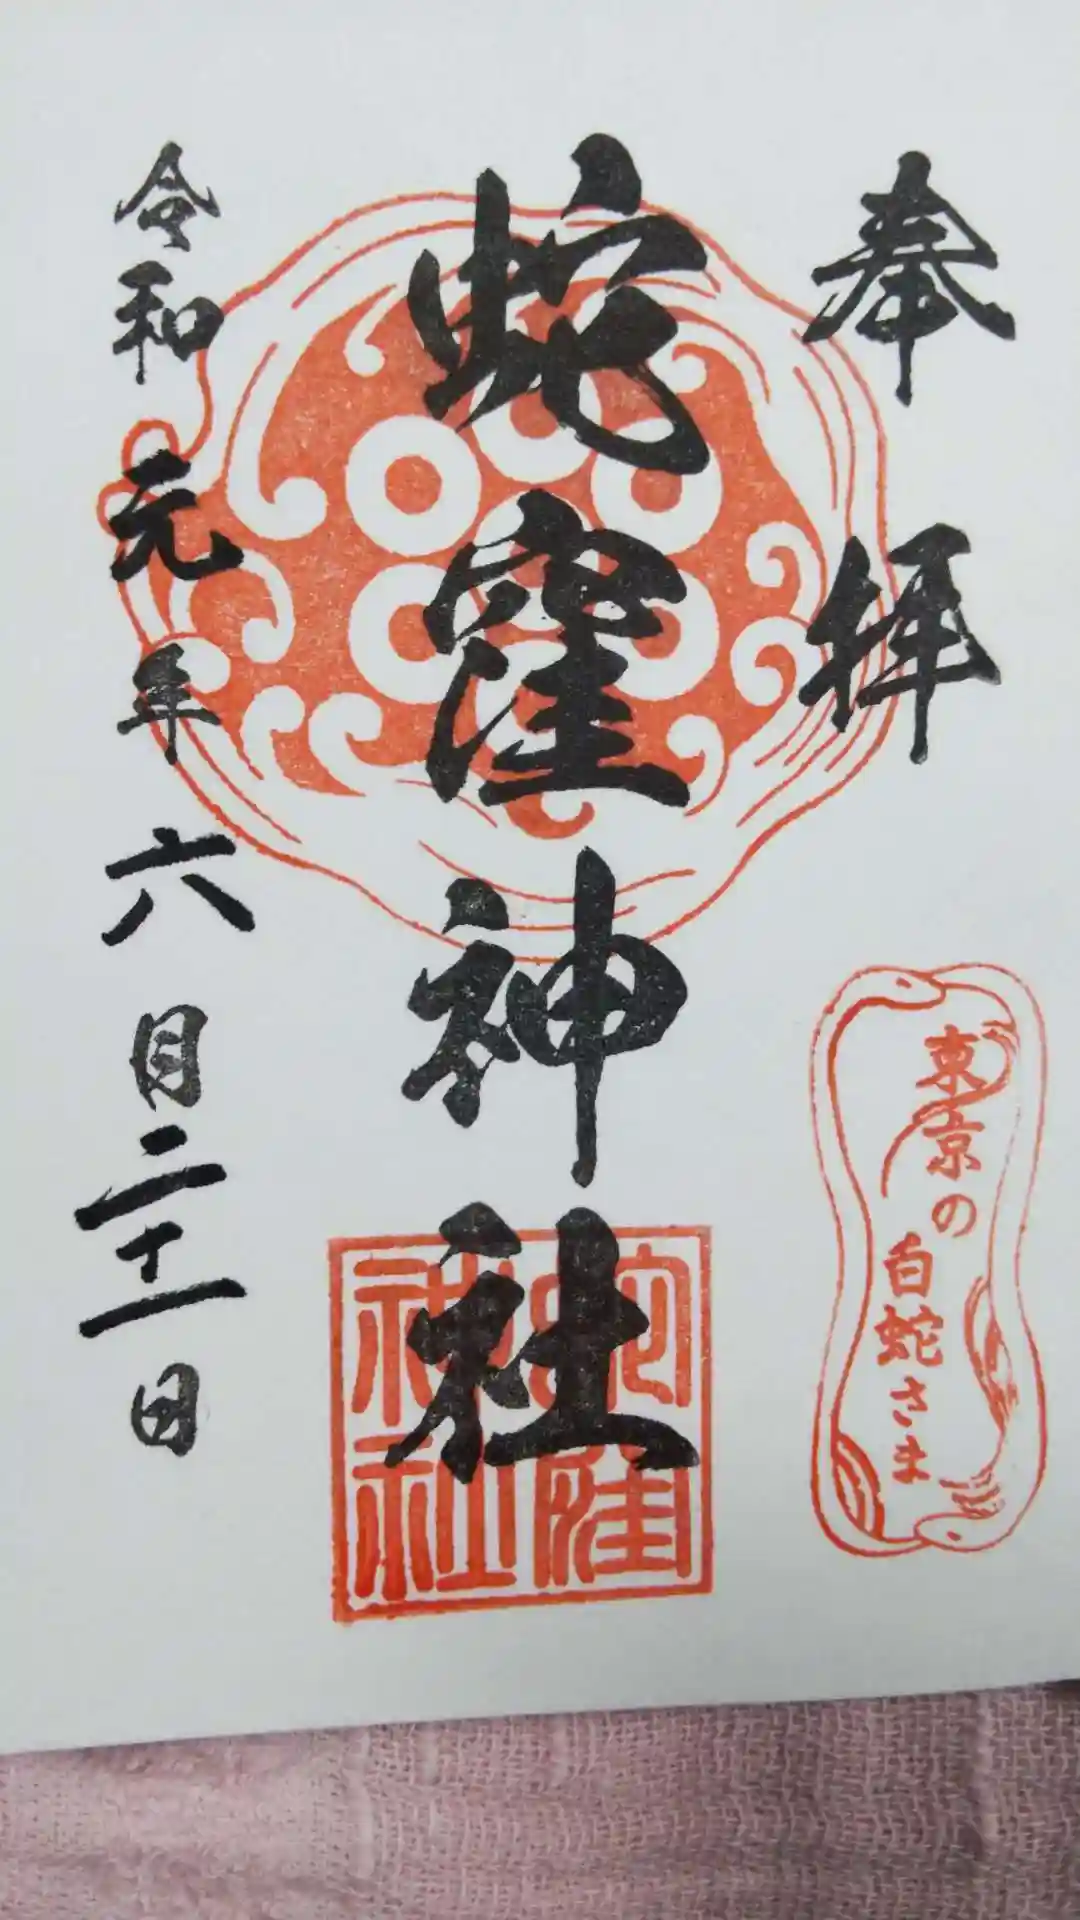 奉拝
東京の
白蛇さま
蛇窪神社
蛇窪
神社
令和元年六月二十一日